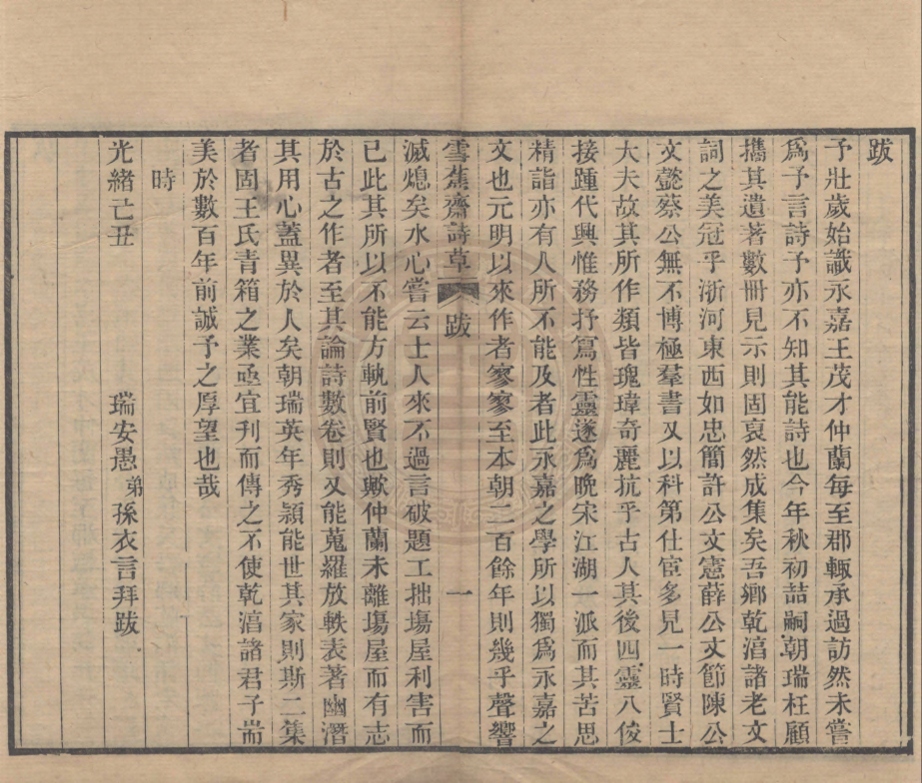 跋
予壯歲始識永嘉王茂才仲蘭每至郡輒承過訪然未嘗
爲予言詩予亦不知其能詩也今年秋初喆嗣朝瑞枉顧
攜其遺著數冊見示則固裒然成集矣吾鄉乾湻諸老文
詞之美冠乎浙河東西如忠簡許公文憲薛公文節陳公
文懿蔡公無不博極羣書又以科第仕宦多見一時賢士
大夫故其所作類皆瑰瑋奇麗抗乎古人其後四靈八俊
接踵代興惟務抒寫性靈遂爲晚宋江湖一派而其苦思
精詣亦有人所不能及者此永嘉之學所以獨爲永嘉之
文也元明以來作者寥寥至本朝二百餘年則幾乎聲響
雪蕉齋詩草 跋 一
滅熄矣水心嘗云士人來不過言破題工拙塲屋利害而
已此其所以不能方軌前賢也歟仲蘭未離塲屋而有志
於古之作者至其論詩數卷則又能蒐羅放軼表著幽潛
其用心蓋異於人矣朝瑞英年秀穎能世其家則斯二集
者固王氏青箱之業亟宜刋而傳之不使乾湻諸君子耑
美於數百年前誠予之厚望也哉
時
光緒己丑 瑞安愚弟孫衣言拜跋